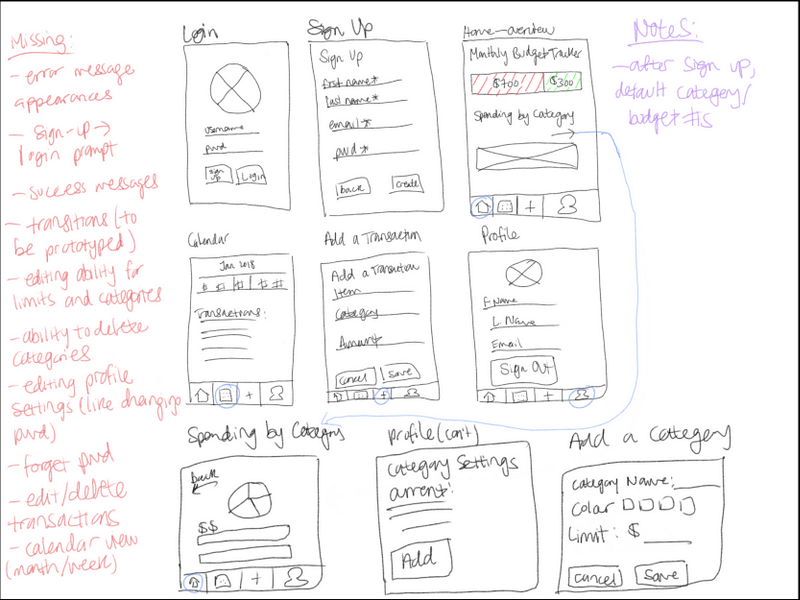 Missing:
- error message
appearances
- Sign-up →
login prompt
- success messages
- transitions (to
be prototyped)
- editing ability for
limits and categories
- ability to delete
categories
- editing profile
settings (like changing
pwd)
- forget pwd
- edit/delete
transactions
- calendar view
(month/week)
Login
username
pwd
Sign
up
Login
Sign Up
Sign Up
first name*
last name*
email *
pwd *
back
create
Home-overview
Monthly Budget Tracker
$700
$300
Spending by Category
+
Notes:
- after sign up,
default category/
budget #s
Calendar
Jan 2018
Transactions:
+
Add a Transaction
Add a Transaction
Item
Category
Amount
Cancel
Save
+
Profile
F. Name
L. Name
Email
Sign Out
+
Spending by Category
back
$$
+
Profile (con't)
Category Settings
current:
Add
Add a Category
Category Name:
Color
Limit: $
Cancel
Save